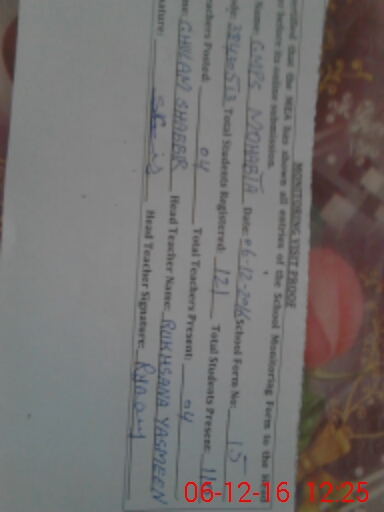 MONITORING VISIT PROOF
ertified that the MEA has shown all entries of the School Monitoring Form to the Head
before its online submission.
Name: GMPS MOHABTA Date: 06-12-2016 School Form No: 15
Total Students Registered: 121 Total Students Present: 11
eachers Posted: 04 Total Teachers Present: 04
me: GHULAM SHABBIR Head Teacher Name: RUKHSANA YASMEEN
nature: Head Teacher Signature:
06-12-16 12:25